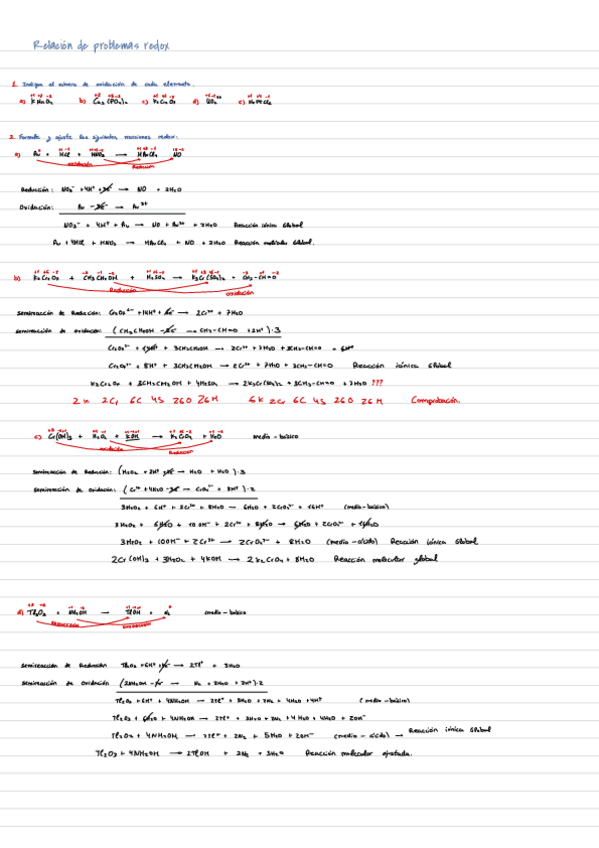 Relación de problemas redox
1. Indique el número de oxidación de cada elemento.
a) b) c) d) e)
2. Formule y ajuste las siguientes reacciones redox:
a) Au + HCl + HNO₃ → HAuCl₄ NO
oxidación Reducción
Reducción: NO₃⁻ + 4H⁺ + 3e⁻ → NO + 2H₂O
Oxidación: Au - 3e⁻ → Au³⁺
NO₃⁻ + 4H⁺ + Au → NO + Au³⁺ + 2H₂O Reacción iónica Global
Au + 4HCl + HNO₃ → HAuCl₄ + NO + 2H₂O Reacción molecular Global.
b) K₂Cr₂O₇ + CH₃CH₂OH + H₂SO₄ → + CH₃-CH=O
Reducción oxidación
Semirreacción de Reducción: Cr₂O₇²⁻ + 14H⁺ + 6e⁻ → 2Cr³⁺ + 7H₂O
Semirreacción de oxidación: (CH₃CH₂OH - 2e⁻ → CH₃-CH=O + 2H⁺)·3
Cr₂O₇²⁻ + 14H⁺ + 3CH₃CH₂OH → 2Cr³⁺ + 7H₂O + 3CH₃-CH=O + 6H⁺
Cr₂O₇²⁻ + 8H⁺ + 3CH₃CH₂OH → 2Cr³⁺ + 7H₂O + 3CH₃-CH=O Reacción iónica Global
K₂Cr₂O₇ + 3CH₃CH₂OH + 4H₂SO₄ → + 3CH₃-CH=O + 7H₂O ???
2K 2Cr 6C 4S 26O 26H 6K 2Cr 6C 4S 26O 26H Comprobación.
c) Cr(OH)₃ + H₂O₂ + KOH → K₂CrO₄ + H₂O medio - básico
oxidación Reducción
Semirreacción de Reducción: (H₂O₂ + 2H⁺ + 2e⁻ → H₂O + H₂O)·3
Semirreacción de oxidación: (Cr³⁺ + 4H₂O - 3e⁻ → CrO₄²⁻ + 8H⁺)·2
3H₂O₂ + 6H⁺ + 2Cr³⁺ + 8H₂O → 6H₂O + 2CrO₄²⁻ + 16H⁺ (medio-básico)
3H₂O₂ + + 10OH⁻ + 2Cr³⁺ + 8H₂O → 6H₂O + 2CrO₄²⁻ +
3H₂O₂ + 10OH⁻ + 2Cr³⁺ → 2CrO₄²⁻ + 8H₂O (medio-ácido) Reacción iónica Global
2Cr(OH)₃ + 3H₂O₂ + 4KOH → 2K₂CrO₄ + 8H₂O Reacción molecular global
d) Tl₂O₃ + NH₂OH → TlOH + N₂ medio - básico
Reducción oxidación
Semirreacción de Reducción Tl₂O₃ + 6H⁺ + 4e⁻ → 2Tl⁺ + 3H₂O
Semirreacción de Oxidación
Tl₂O₃ + 6H⁺ + 4NH₂OH → 2Tl⁺ + 3H₂O + 2N₂ + 4H₂O + 4H⁺ (medio-básico)
Tl₂O₃ + 6H₂O + 4NH₂OH → 2Tl⁺ + 3H₂O + 2N₂ + 4H₂O + 4H₂O + 2OH⁻
Tl₂O₃ + 4NH₂OH → 2Tl⁺ + 2N₂ + 5H₂O + 2OH⁻ (medio-ácido) → Reacción iónica Global
Tl₂O₃ + 4NH₂OH → 2TlOH + 2N₂ + Reacción molecular ajustada.